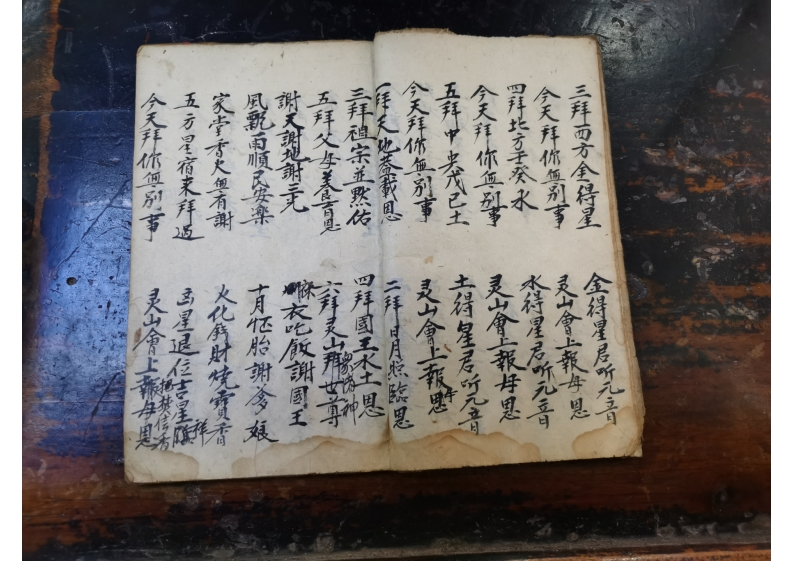 三拜西方金得星 金得星君听元音
今天拜你無别事 灵山會上報母恩
四拜北方壬癸水 水得星君听元音
今天拜你無别事 灵山會上報母恩
五拜中央戊己土 土得星君听元音
今天拜你無别事 灵山會上報母恩
一拜天地盖載恩 二拜日月照臨恩
三拜祖宗並默佑 四拜國王水土恩
五拜父母养育恩 六拜灵山拜世尊
諸神
謝天謝地謝三光 衣吃飯謝國王
風飄雨順民安楽 十月怀胎謝爹娘
家堂香火無有謝 火化錢財焼寳香
五方星宿来拜過 星退位吉星
今天拜你無别事 灵山會上報母恩